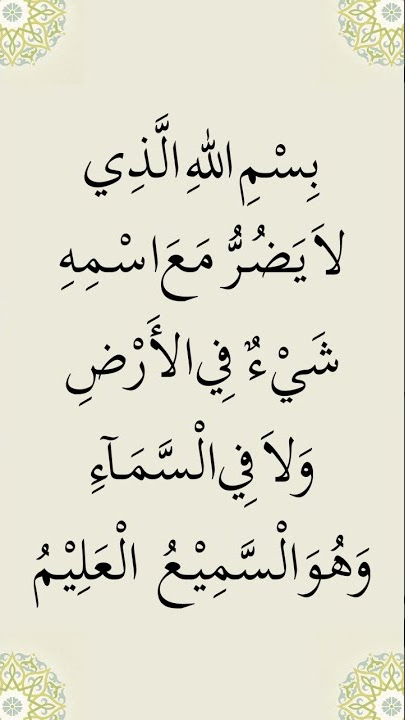 بِسْمِ اللهِ الَّذِي
لاَ يَضُرُّ مَعَ اسْمِهِ
شَيْءٌ فِي الأَرْضِ
وَلاَ فِي الْسَّمَآءِ
وَهُوَ الْسَّمِيْعُ الْعَلِيْمُ